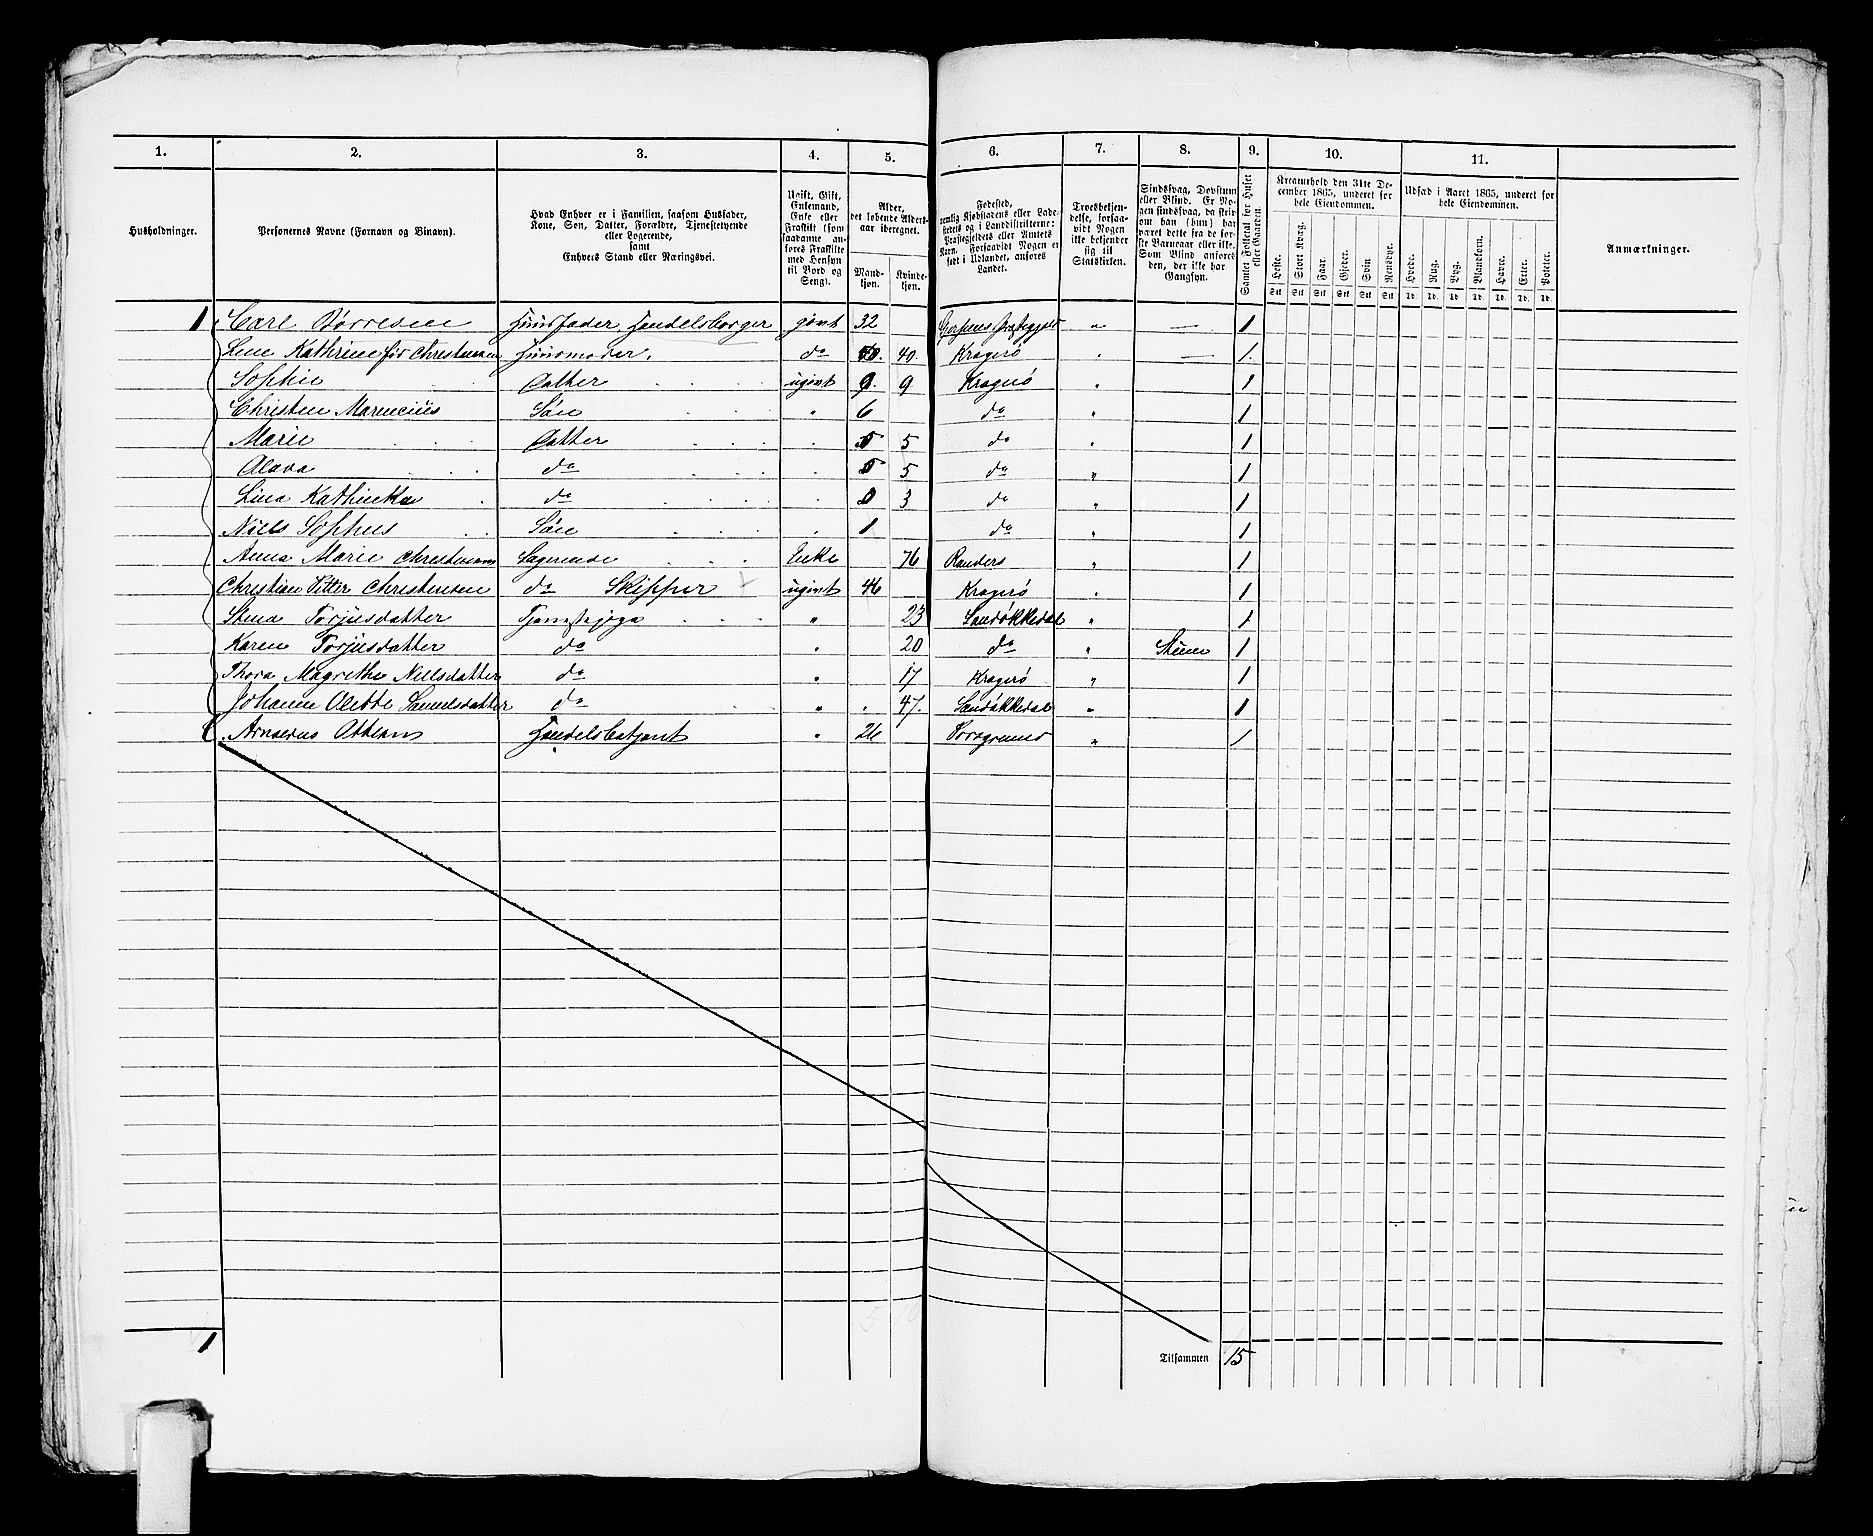 1. 2. 3. 4. 5. 6. 7. 8. 9. 10. 11.
Husholdninger.
Personernes Navne (Fornavn og Binavn).
Hvad Enhver er i Familien, saasom Husfader,
Kone, Søn, Datter, Forældre, Tjenestetyende
eller Logerende,
samt
Enhvers Stand eller Næringsvei.
Ugift, Gift,
Enkemand,
Enke eller
Fraskilt (som
saadanne an-
føres Fraskilte
med Hensyn
til Bord og
Seng).
Alder,
det løbende Alders-
aar iberegnet.
Mand-
kjøn.
Kvinde-
kjøn.
Fødested,
nemlig Kjøbstadens eller Lade-
stedets og i Landdistrikterne:
Præstegjeldets eller Amtets
Navn. Forsaavidt Nogen er
født i Udlandet, anføres
Landet.
Troesbekjen-
delse, forsaa-
vidt Nogen
ikke bekjender
sig til
Statskirken.
Sindssvag, Døvstum
eller Blind. Er No-
gen sindssvag, da skriv
om han (hun) har
været dette fra de før-
ste Barneaar eller ikke.
Som Blind anføres
den, der ikke har
Gangsyn.
Samlet Folketal for Huset
eller Gaarden.
Kreaturhold den 31te De-
cember 1865, underet for
hele Eiendommen.
Heste. Stort Kvæg. Faar. Gjeder. Svin. Rensdyr.
Stk Stk Stk Stk Stk Stk
Udsæd i Aaret 1865, underet for
hele Eiendommen.
Hvede. Rug. Byg. Blandkorn. Havre. Erter. Poteter.
Td. Td. Td. Td. Td. Td. Td.
Anmærkninger.
1 Carl Børresen Huusfader Handelsborger givt 32 Gerpens Præstegjeld " — 1
Line Kathrine før Christensen Huusmoder. do 40 Kragerø " — 1
Sophie Datter ugivt 9 Kragerø " 1
Christen Marencius Søn " 6 do " 1
Marie Datter 5 do " 1
Alava do 5 do " 1
Lina Kathinka do 3 do " 1
Niels Sophus Søn 1 do " 1
Anna Marie Christensen Logerende Enke 76 Randers " 1
Christian Petter Christensen do Skipper ugivt 46 Kragerø " 1
Stina Torjusdatter Tjenstepige " 23 Sandøkkedal " 1
Karen Torjusdatter do " 20 do " Stum 1
Thora Magrethe Nielsdatter do " 17 Kragerø " 1
Johanne Olette Samuelsdatter do " 47. Sandøkkedal " 1
Handelsbetjent " 24 Porsgrund " 1
1
Tilsammen 15